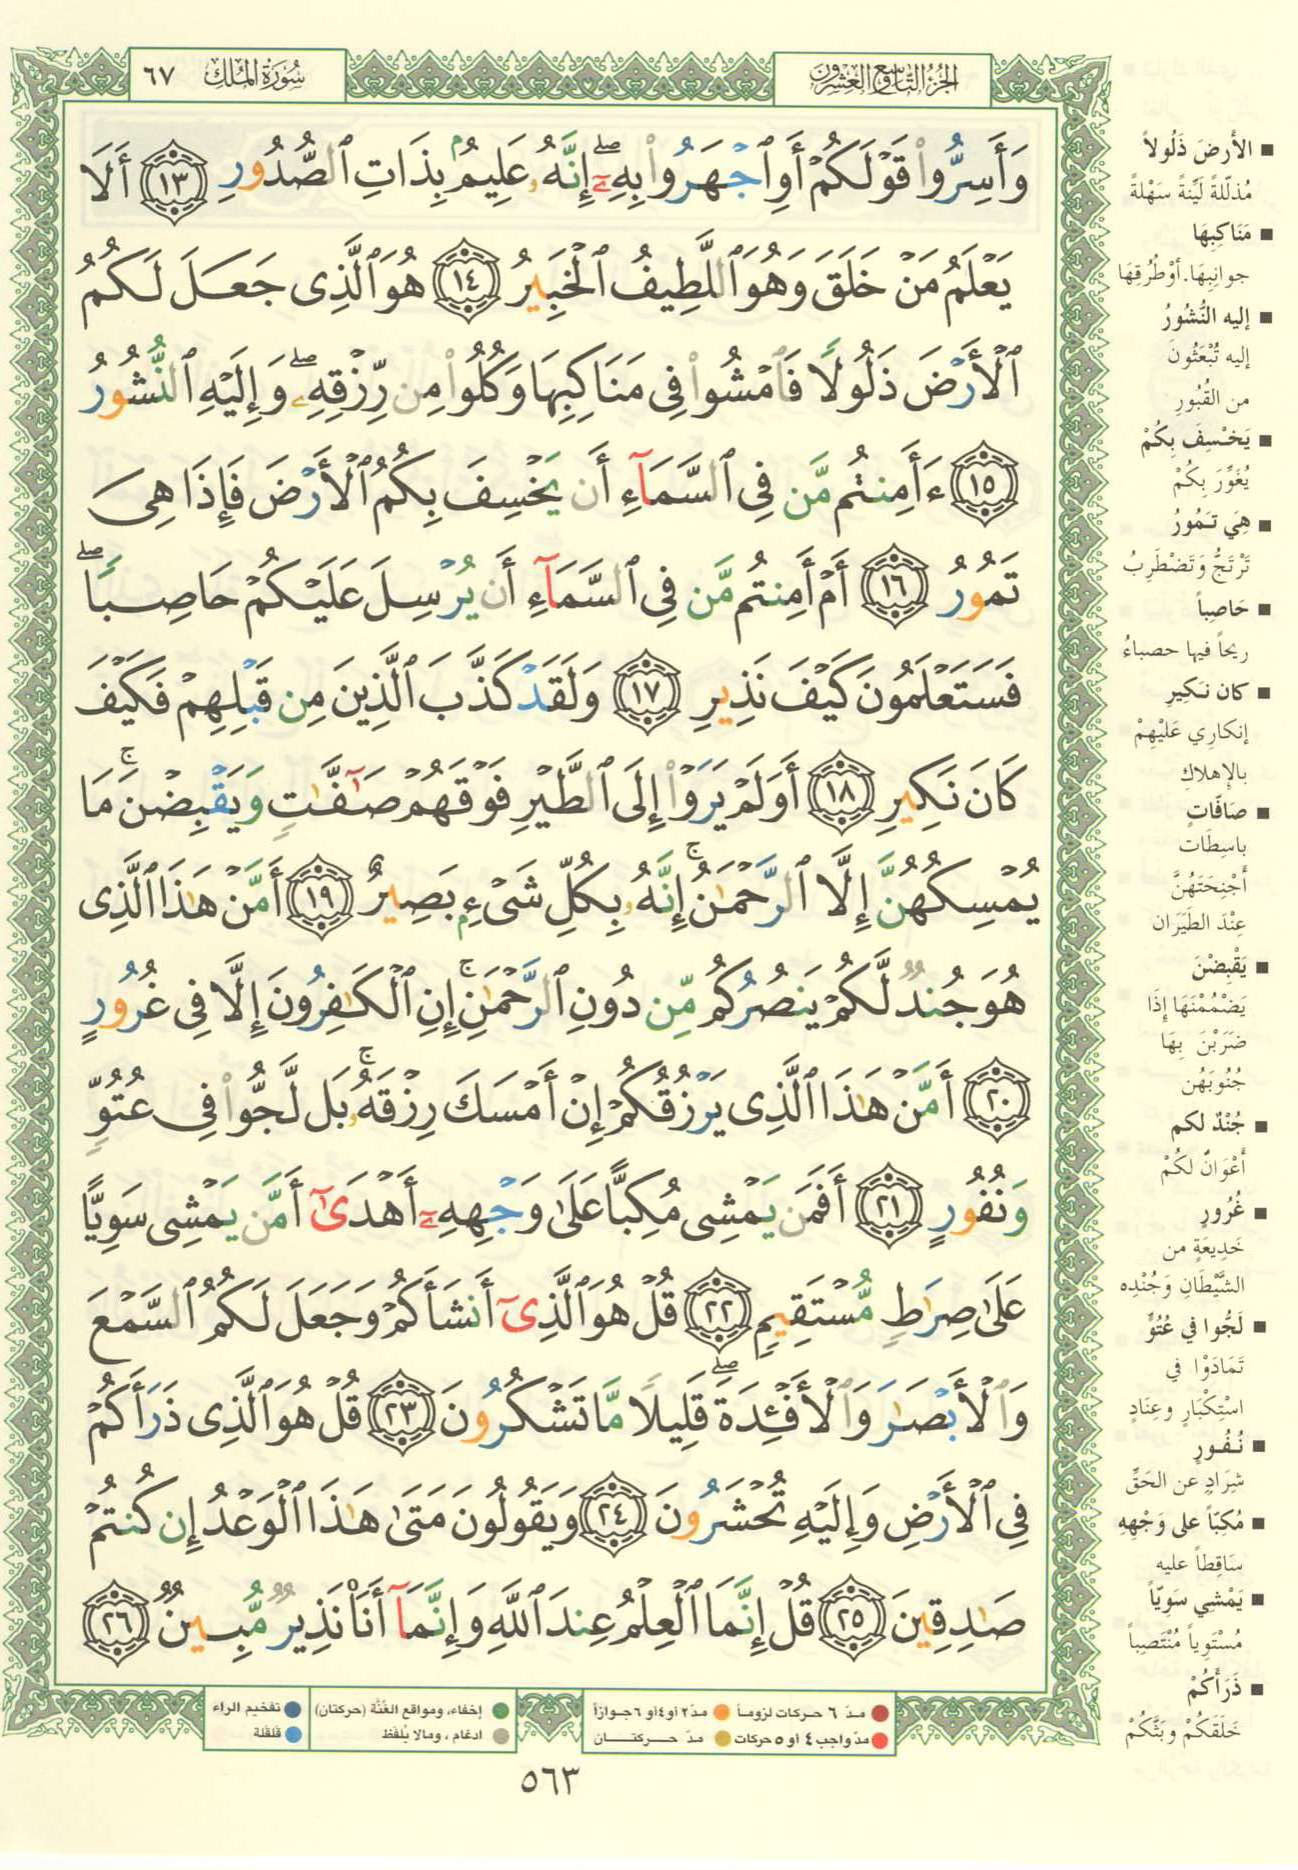 الجزء التاسع والعشرون
سورة الملك ٦٧
وَأَسِرُّوا۟ قَوْلَكُمْ أَوِ ٱجْهَرُوا۟ بِهِۦٓ ۖ إِنَّهُۥ عَلِيمٌۢ بِذَاتِ ٱلصُّدُورِ ١٣ أَلَا
يَعْلَمُ مَنْ خَلَقَ وَهُوَ ٱللَّطِيفُ ٱلْخَبِيرُ ١٤ هُوَ ٱلَّذِى جَعَلَ لَكُمُ
ٱلْأَرْضَ ذَلُولًا فَٱمْشُوا۟ فِى مَنَاكِبِهَا وَكُلُوا۟ مِن رِّزْقِهِۦ ۖ وَإِلَيْهِ ٱلنُّشُورُ
١٥ ءَأَمِنتُم مَّن فِى ٱلسَّمَآءِ أَن يَخْسِفَ بِكُمُ ٱلْأَرْضَ فَإِذَا هِىَ
تَمُورُ ١٦ أَمْ أَمِنتُم مَّن فِى ٱلسَّمَآءِ أَن يُرْسِلَ عَلَيْكُمْ حَاصِبًا ۖ
فَسَتَعْلَمُونَ كَيْفَ نَذِيرِ ١٧ وَلَقَدْ كَذَّبَ ٱلَّذِينَ مِن قَبْلِهِمْ فَكَيْفَ
كَانَ نَكِيرِ ١٨ أَوَلَمْ يَرَوْا۟ إِلَى ٱلطَّيْرِ فَوْقَهُمْ صَـٰٓفَّـٰتٍ وَيَقْبِضْنَ ۚ مَا
يُمْسِكُهُنَّ إِلَّا ٱلرَّحْمَـٰنُ ۚ إِنَّهُۥ بِكُلِّ شَىْءٍۭ بَصِيرٌ ١٩ أَمَّنْ هَـٰذَا ٱلَّذِى
هُوَ جُندٌ لَّكُمْ يَنصُرُكُم مِّن دُونِ ٱلرَّحْمَـٰنِ ۚ إِنِ ٱلْكَـٰفِرُونَ إِلَّا فِى غُرُورٍ
٢٠ أَمَّنْ هَـٰذَا ٱلَّذِى يَرْزُقُكُمْ إِنْ أَمْسَكَ رِزْقَهُۥ ۚ بَل لَّجُّوا۟ فِى عُتُوٍّ
وَنُفُورٍ ٢١ أَفَمَن يَمْشِى مُكِبًّا عَلَىٰ وَجْهِهِۦٓ أَهْدَىٰٓ أَمَّن يَمْشِى سَوِيًّا
عَلَىٰ صِرَٰطٍ مُّسْتَقِيمٍ ٢٢ قُلْ هُوَ ٱلَّذِىٓ أَنشَأَكُمْ وَجَعَلَ لَكُمُ ٱلسَّمْعَ
وَٱلْأَبْصَـٰرَ وَٱلْأَفْـِٔدَةَ ۖ قَلِيلًا مَّا تَشْكُرُونَ ٢٣ قُلْ هُوَ ٱلَّذِى ذَرَأَكُمْ
فِى ٱلْأَرْضِ وَإِلَيْهِ تُحْشَرُونَ ٢٤ وَيَقُولُونَ مَتَىٰ هَـٰذَا ٱلْوَعْدُ إِن كُنتُمْ
صَـٰدِقِينَ ٢٥ قُلْ إِنَّمَا ٱلْعِلْمُ عِندَ ٱللَّهِ وَإِنَّمَآ أَنَا۠ نَذِيرٌ مُّبِينٌ ٢٦
الأرضَ ذَلُولاً
مُذلّلةً لَيِّنةً سَهْلةً
مَنَاكِبِهَا
جوانِبِهَا.أوْطُرُقِهَا
إليه النُّشُورُ
إليه تُبْعَثُونَ
من القُبُورِ
يَخْسِفَ بِكُمْ
يُغَوِّرَ بِكُمْ
هِيَ تَمُورُ
تَرْتَجُّ وَتَضْطَرِبُ
حَاصِباً
ريحاً فيها حصباءُ
كان نَكِيرِ
إنكارِي عَلَيْهِمْ
بالإهلاكِ
صَافّاتٍ
باسِطَات
أَجْنِحَتَهُنَّ
عِنْدَ الطَيَران
يَقْبِضْنَ
يَضْمُمْنَهَا إِذَا
ضَرَبْنَ بِهَا
جُنُوبَهُن
جُنْدٌ لكم
أَعْوَانٌ لكُمْ
غُرُورٍ
خَدِيعَةٍ من
الشَّيْطَانِ وَجُنْدِه
لَجُّوا في عُتُوٍّ
تَمَادَوْا في
اسْتِكْبَارٍ وعِنَادٍ
نُفُورٍ
شِرَادٍ عن الحَقِّ
مُكِبّاً على وَجْهِهِ
سَاقِطاً عليه
يَمْشِي سَوِيّاً
مُسْتَوِياً مُنْتَصِباً
ذَرَأَكُمْ
خَلَقَكُمْ وبَثَّكُمْ
مدّ ٦ حركات لزوماً مدّ ٢ أو ٤ أو ٦ جوازاً
مدّ واجب ٤ أو ٥ حركات مدّ حركتان
إخفاء، ومواقع الغُنَّة (حركتان) تفخيم الراء
ادغام ، ومالا يُلفَظ قلقلة
٥٦٣